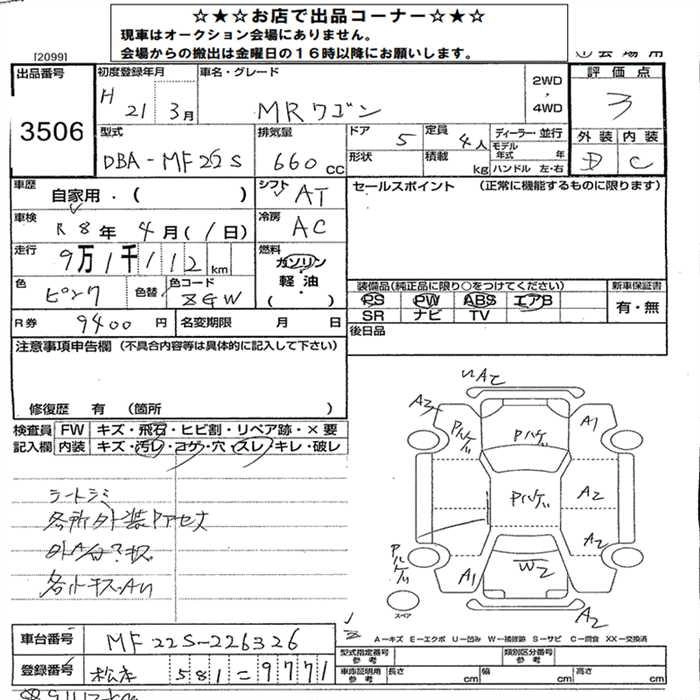 ☆★☆お店で出品コーナー☆★☆
現車はオークション会場にありません。
会場からの搬出は金曜日の16時以降にお願いします。
[2099]
出品番号 初度登録年月 車名・グレード 評価点
3506
H 21 3月 MRワゴン
2WD・4WD
3
型式 排気量 ドア 定員 ディーラー・並行 外装 内装
DBA-MF22S 660cc 5 4人
形状 積載 kg
モデル年式 年
ハンドル 左・右
D C
車歴 自家用・( ) シフト AT
セールスポイント (正常に機能するものに限ります)
車検 R8年4月(1日) 冷房 AC
走行 9万1千112km 燃料 ガソリン 軽油 ( )
色 ピンク 色替 色コード ZGW
装備品(純正品に限り○をつけてください) 新車保証書
PS PW ABS エアB 有・無
SR ナビ TV
R券 9400円 名変期限 月 日
後日品
注意事項申告欄 (不具合内容等は具体的に記入して下さい)
修復歴 有 (箇所
検査員 FW キズ・飛石・ヒビ割・リペア跡・×要
記入欄 内装 キズ・汚レ・コゲ・穴・スレ・キレ・破レ
シートシミ
各所外装Pアセ大
A2
A3 Pハゲ Pハゲ A1
Pハゲ A2
Pハゲ A2
A1 W2
A2
スペア
A-キズ E-エクボ U-凹み W-補修跡 S-サビ C-腐食 XX-交換済
車台番号 MF22S-226326
登録番号 松本 581 = 9771
型式指定番号 参考 類別区分番号 参考
車庫証明用 参考 長さ cm 幅 cm 高さ cm